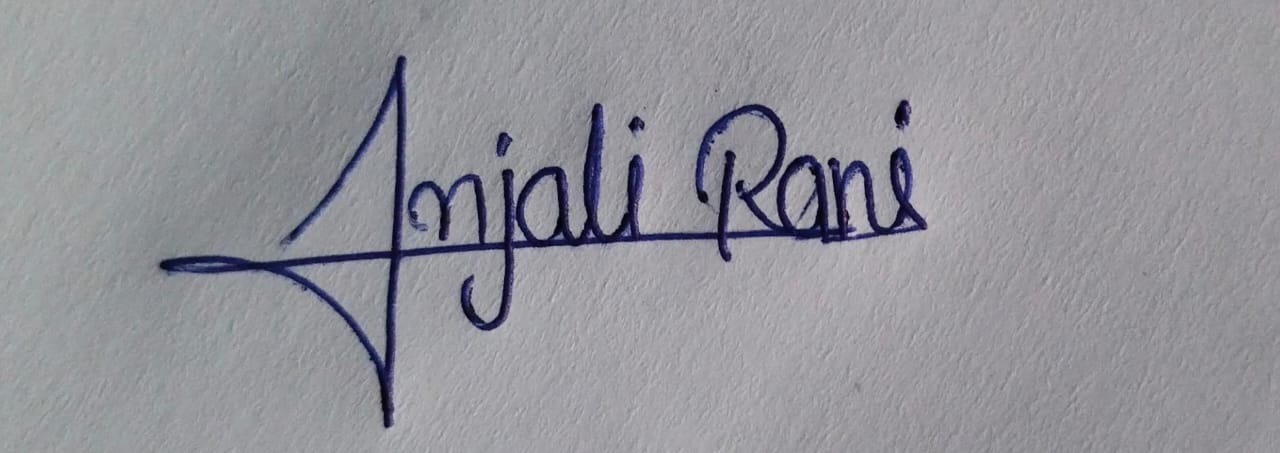 Anjali Rani